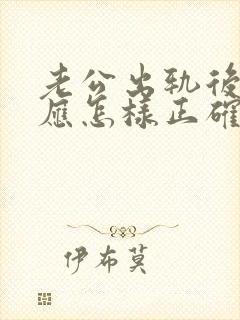 老公出轨後
應怎樣正確
伊布莫